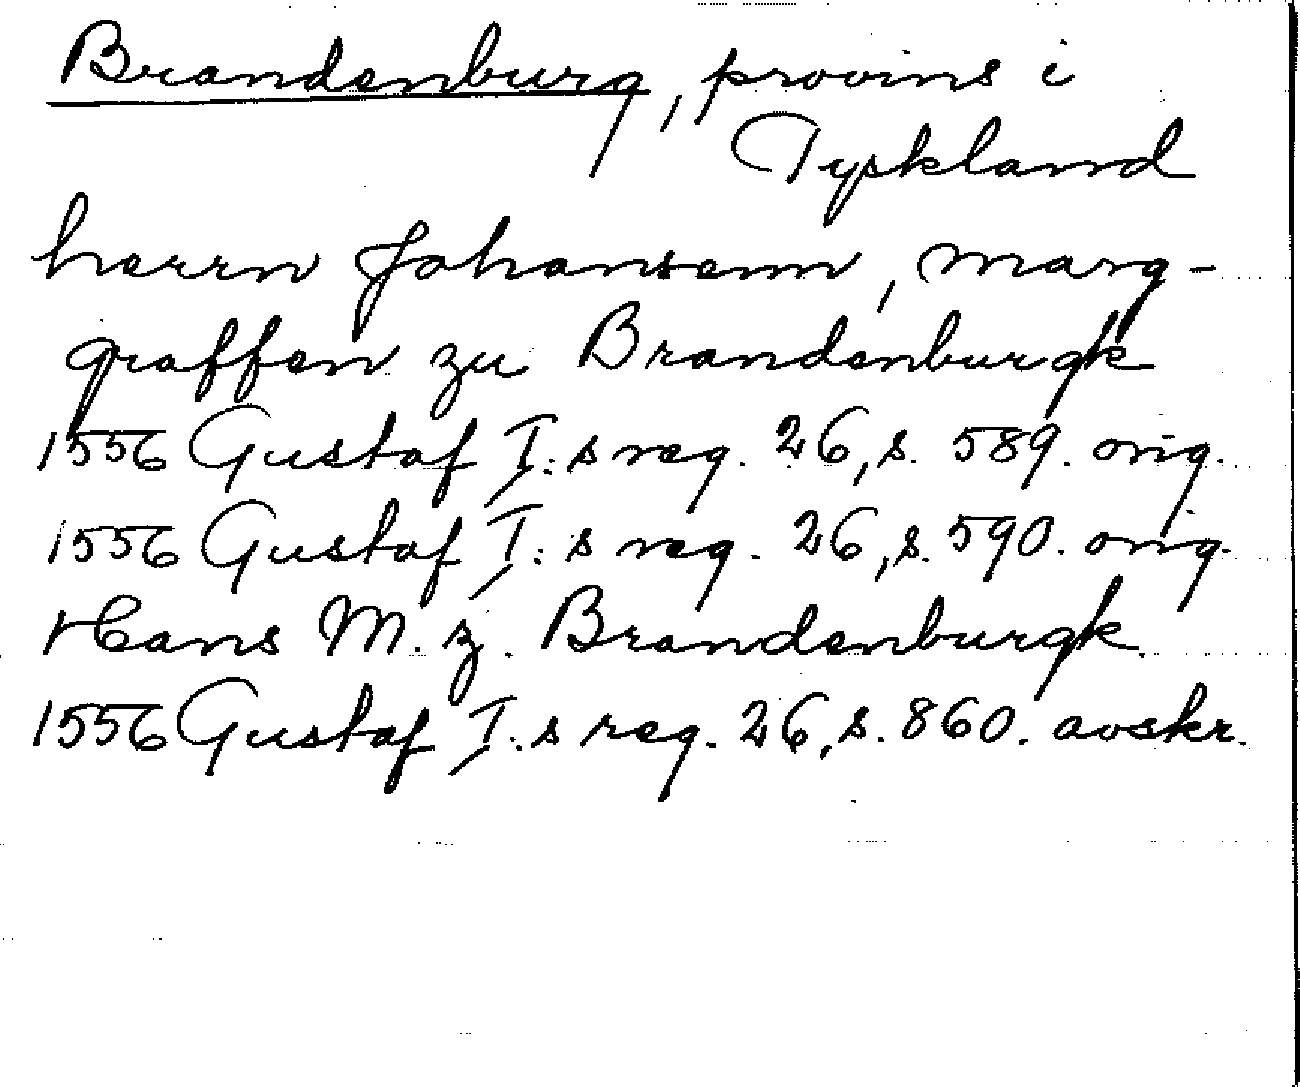 Brandenburg, provins i
Tyskland
herrn Johansenn, marg-
graffen zu Brandenburgk
1556 Gustaf I:s reg. 26, s. 589. orig.
1556 Gustaf I:s reg. 26, s. 590. orig.
Hans M. z. Brandenburgk
1556 Gustaf I:s reg. 26, s. 860. avskr.